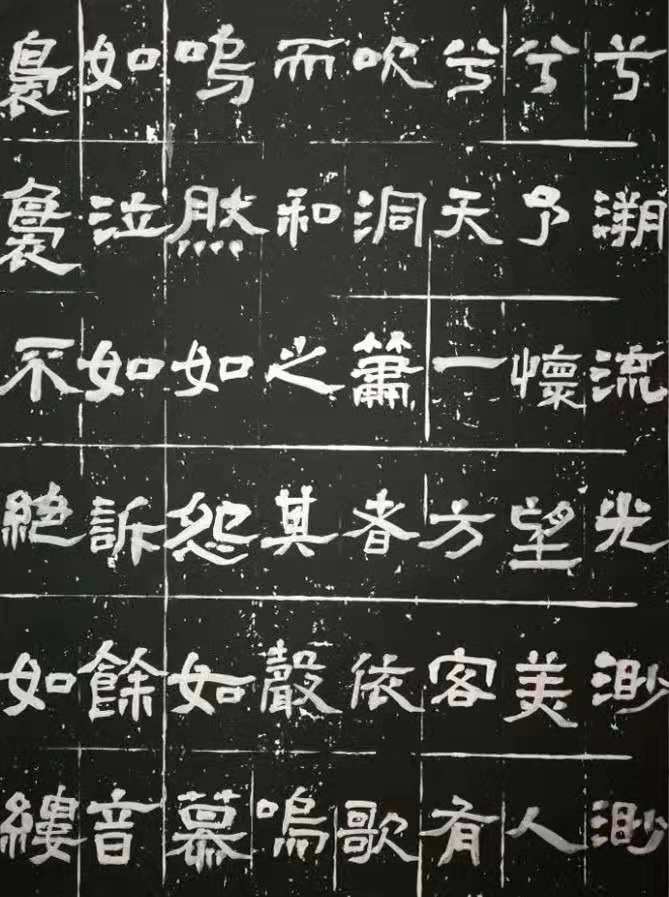 兮溯流光渺渺
兮予懷望美人
兮天一方客有
吹洞簫者依歌
而和之其聲嗚
嗚然如怨如慕
如泣如訴餘音
裊裊不絕如縷